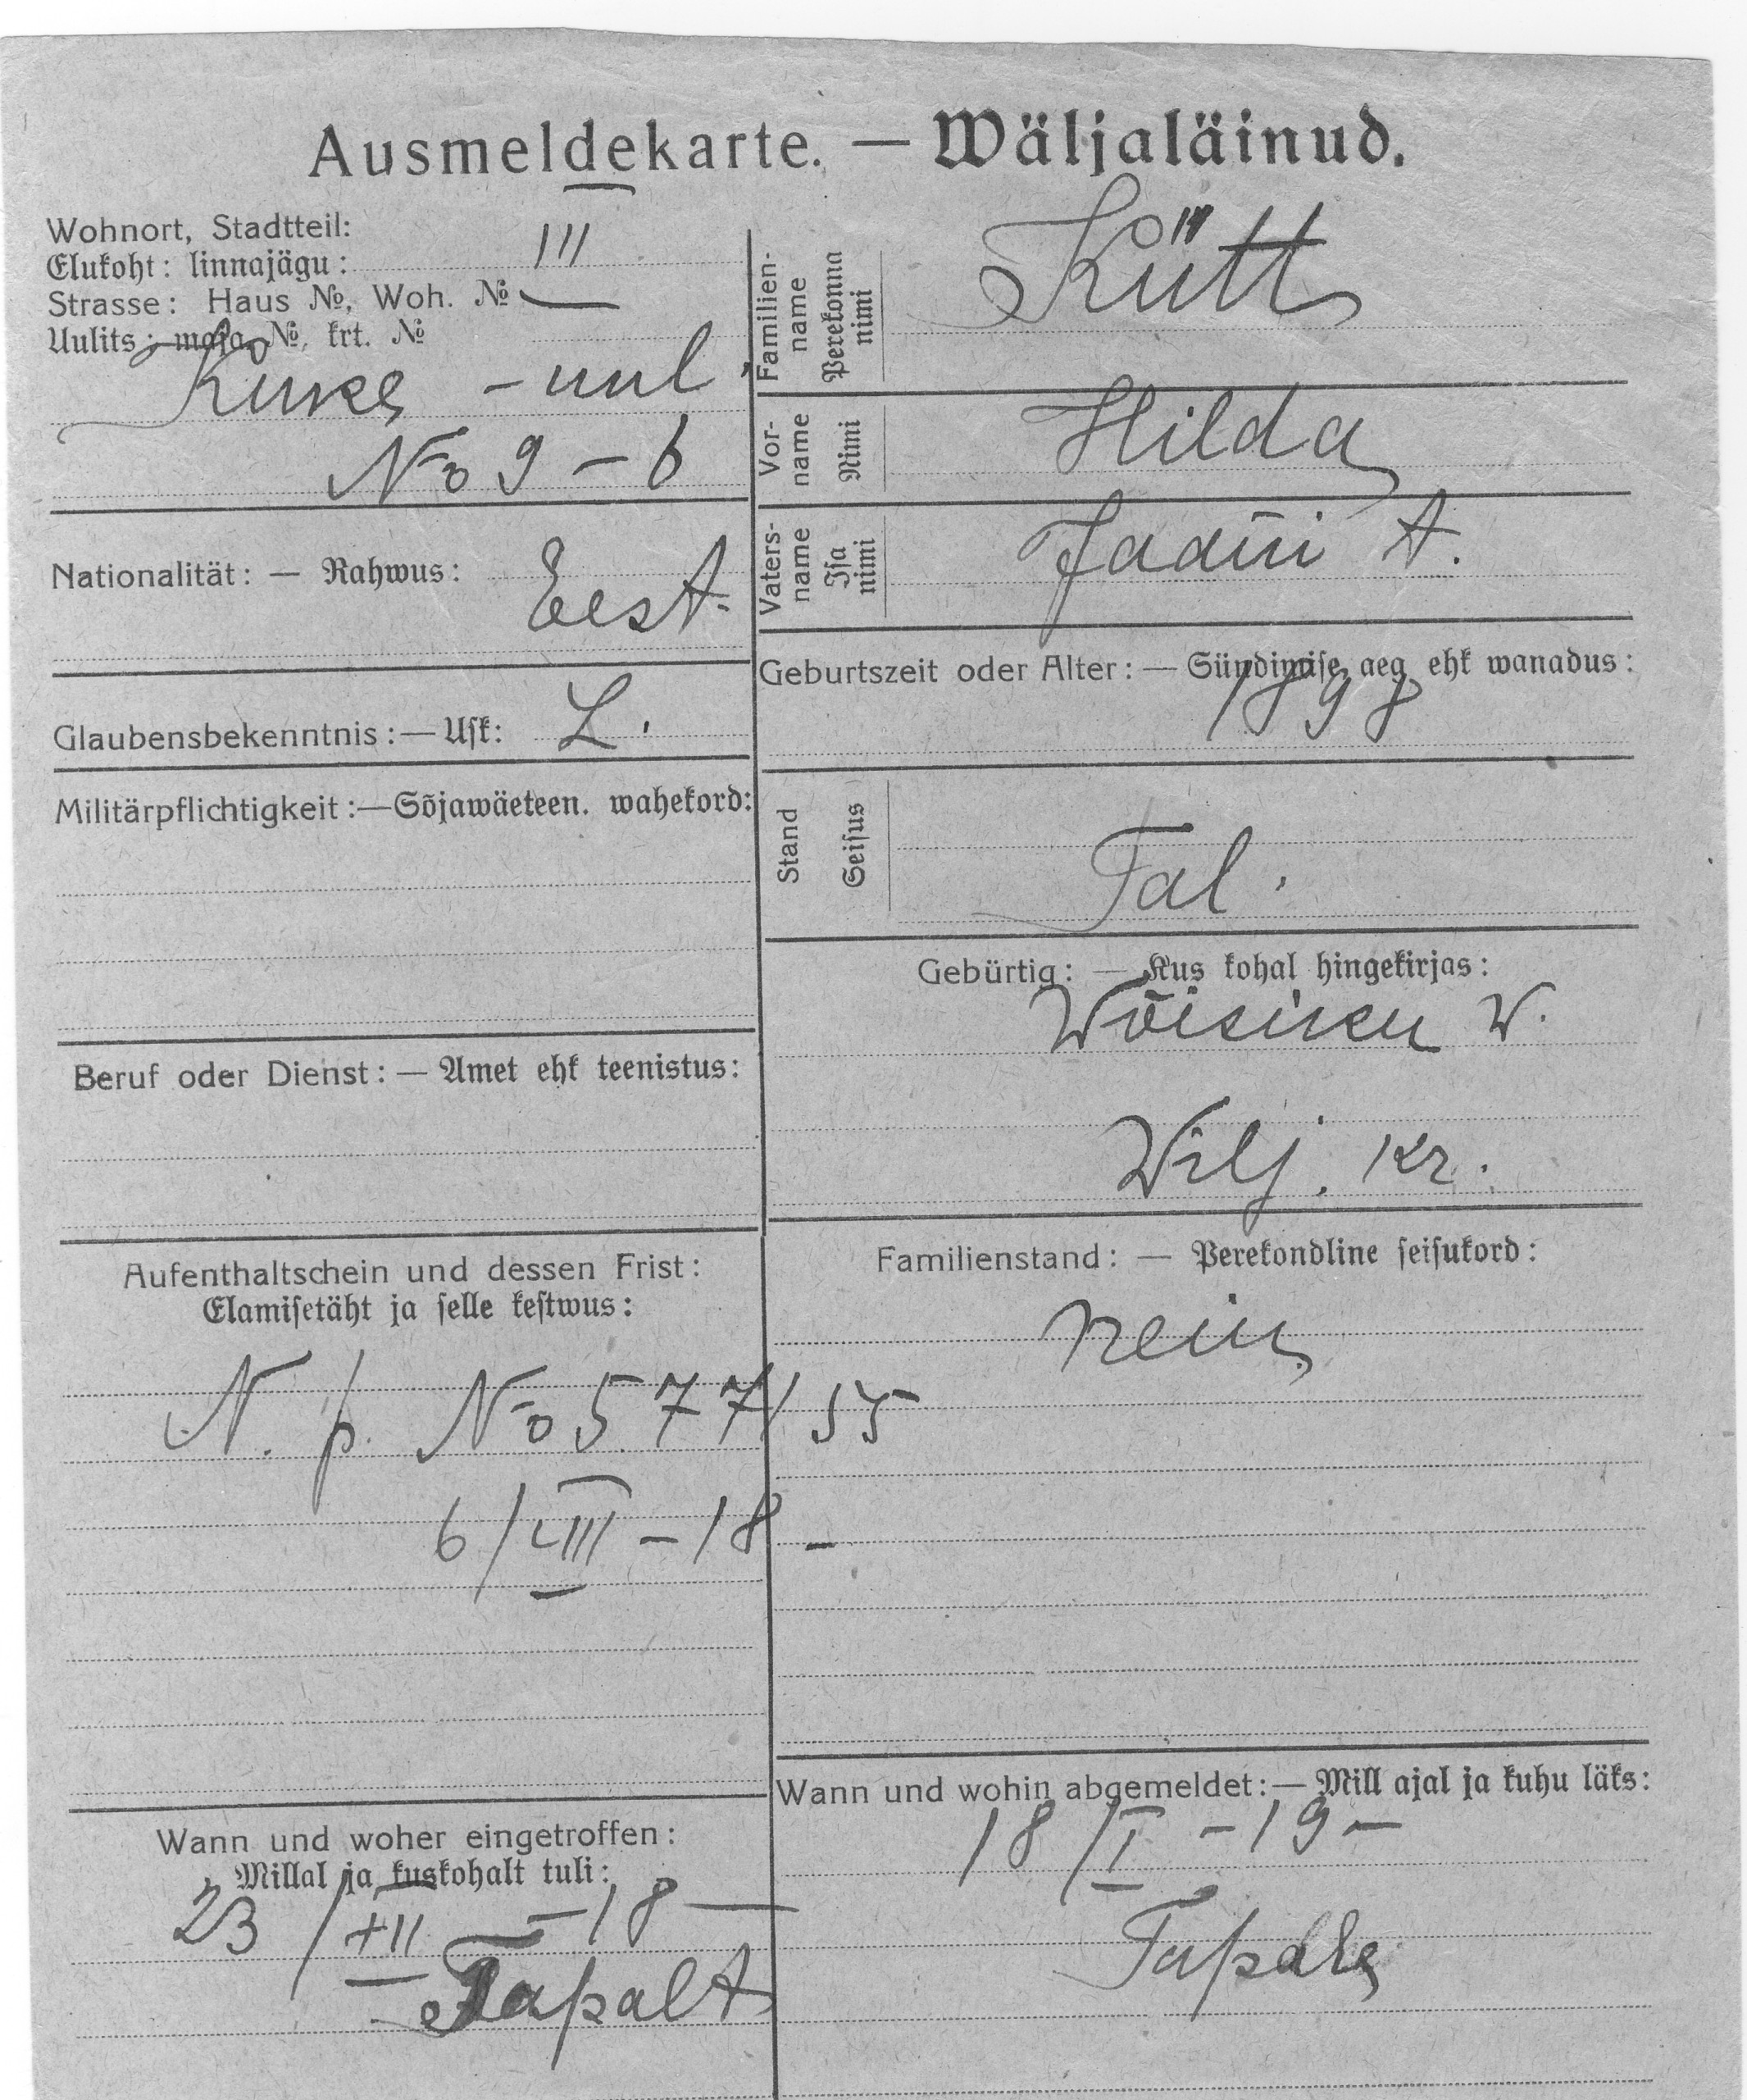 Ausmeldekarte. — Wäljaläinud.
Wohnort, Stadtteil:
Elukoht: linnajägu: III
Strasse: Haus №, Woh. №
Uulits: maja №, krt. №
— uul.
No 9 — 6
Nationalität: — Rahwus: Eest.
Glaubensbekenntnis: — Usk: L.
Militärpflichtigkeit: — Sõjawäeteen. wahekord:
Beruf oder Dienst: — Amet ehk teenistus:
Aufenthaltschein und dessen Frist:
Elamisetäht ja selle kestwus:
N. p. No 577/55
6/VIII — 18 —
Wann und woher eingetroffen:
Millal ja kuskohalt tuli:
23/XII — 18 —
Tapalt
Familien-
name
Perekonna
nimi
Kütt
Vor-
name
Nimi
Hilda
Vaters-
name
Isa
nimi
Jaani t.
Geburtszeit oder Alter: — Sündimise aeg ehk wanadus:
1898
Stand
Seisus
Tal.
Gebürtig: — Kus kohal hingekirjas:
Wõisiku w.
Wilj. kr.
Familienstand: — Perekondline seisukord:
neiu
Wann und wohin abgemeldet: — Mill ajal ja kuhu läks:
18/I — 19 —
Tapale